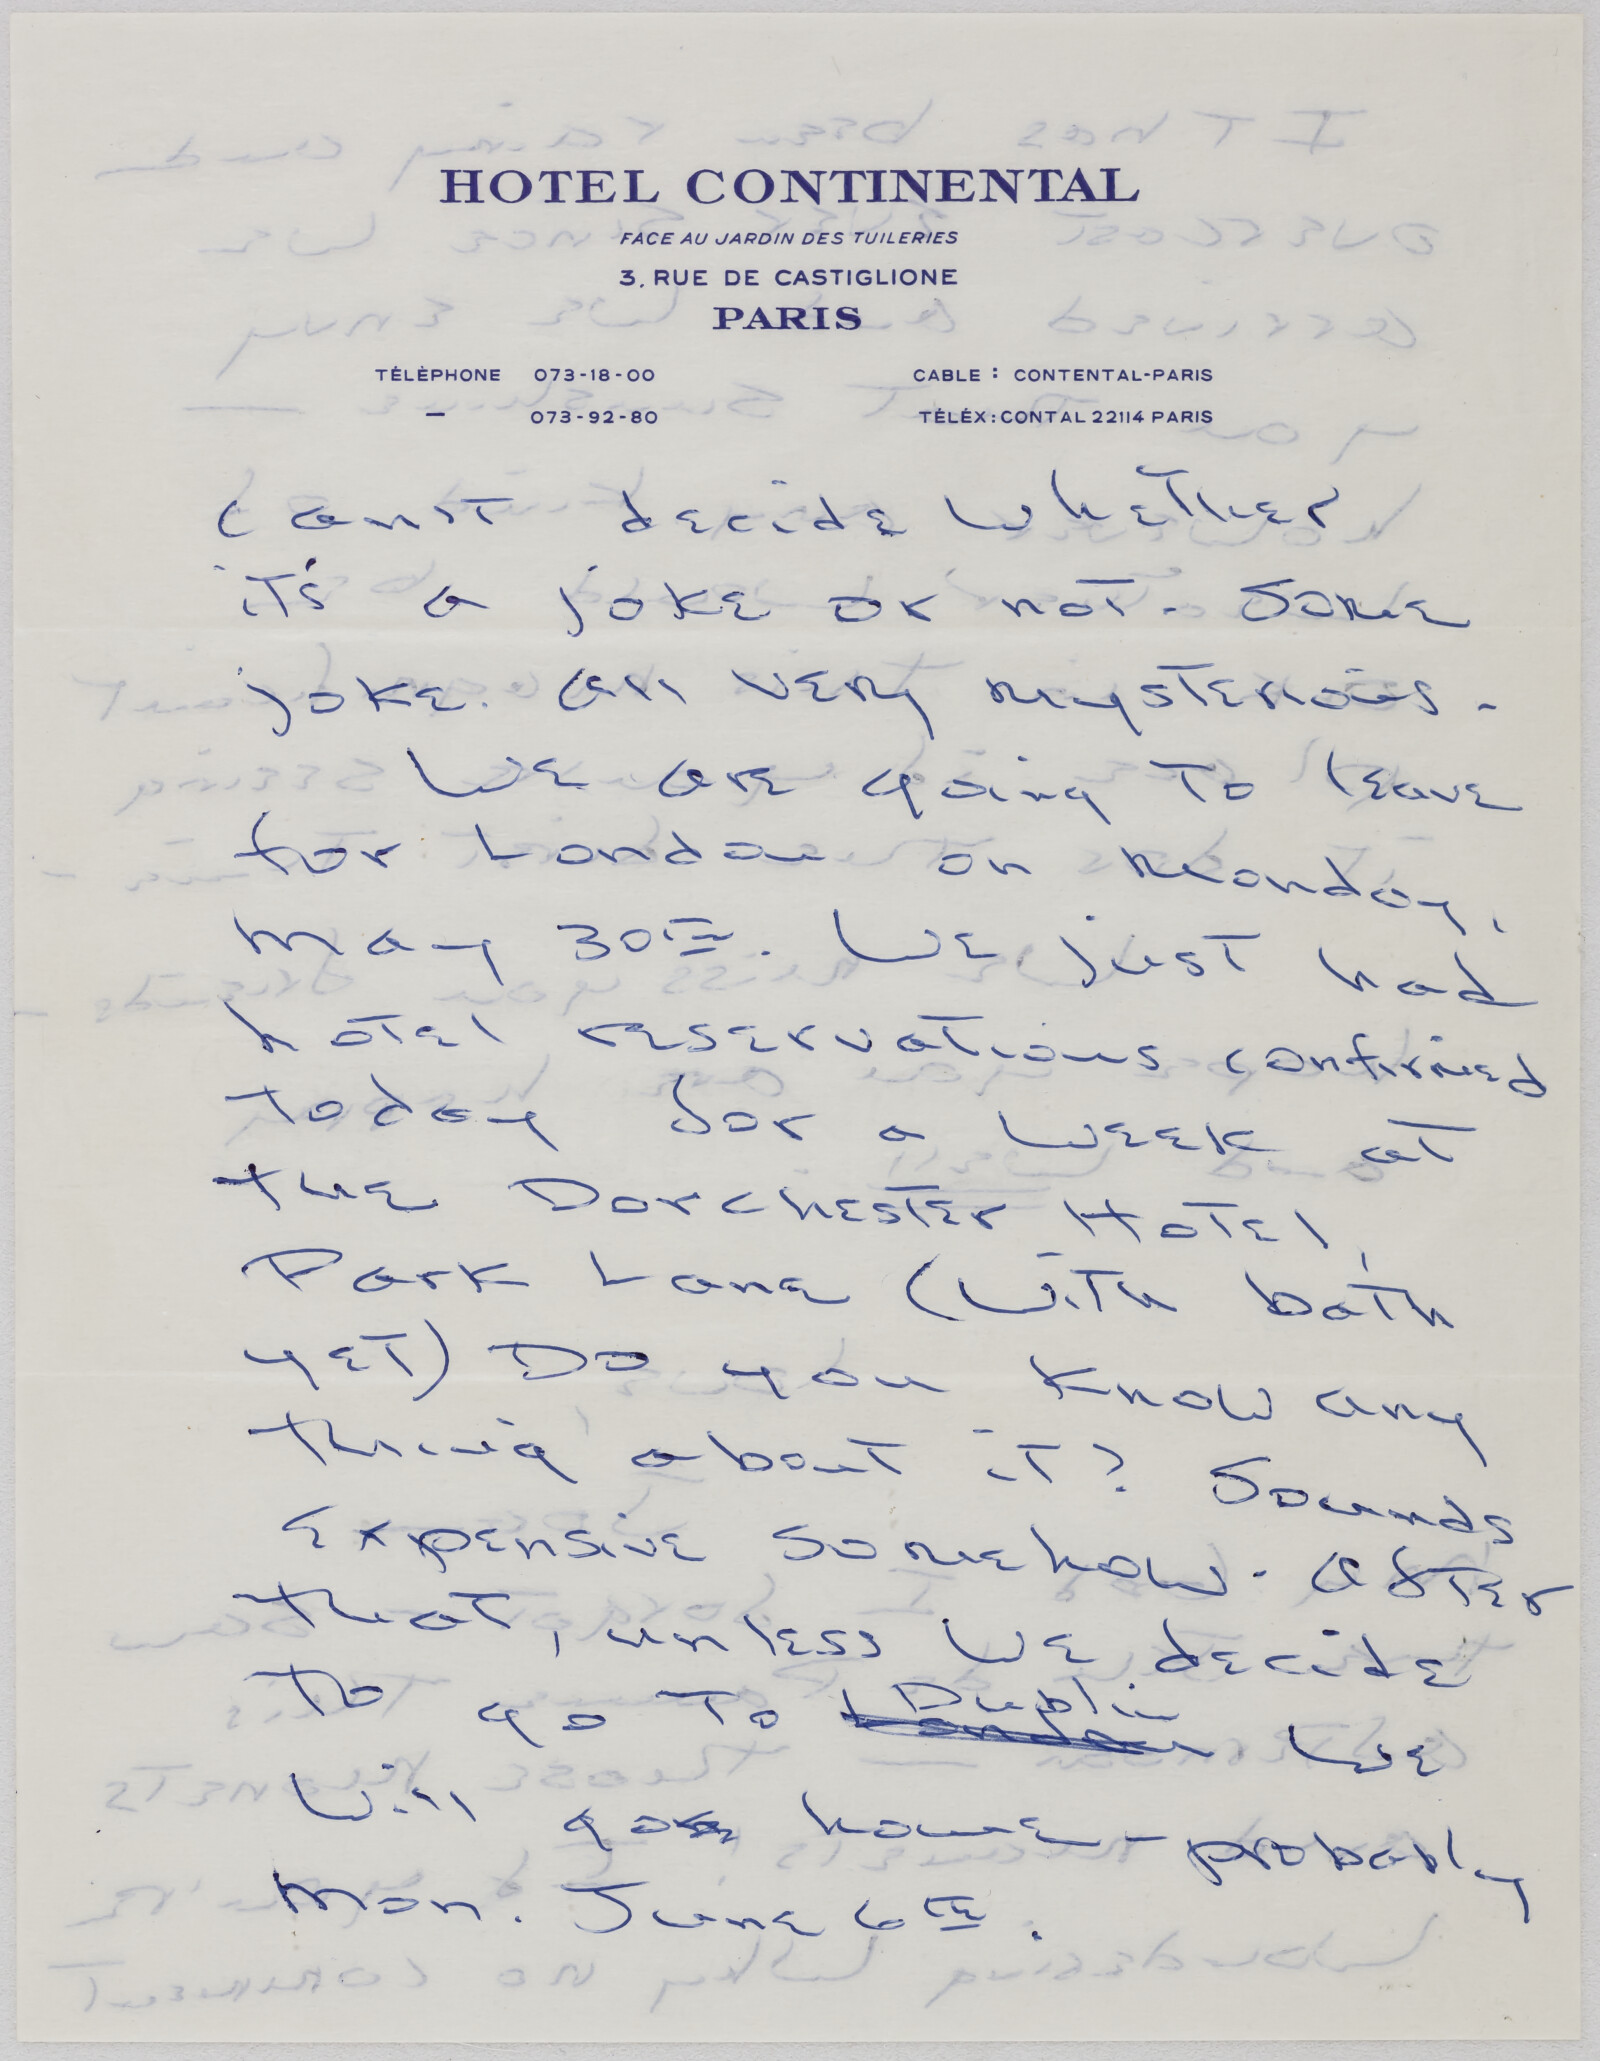 HOTEL CONTINENTAL
FACE AU JARDIN DES TUILERIES
3, RUE DE CASTIGLIONE
PARIS
TÉLÉPHONE 073-18-00
— 073-92-80
CABLE : CONTENTAL-PARIS
TÉLÉX: CONTAL 22114 PARIS
Can't decide whether
it's a joke or not. Some
joke. All very mysterious.
We are going to leave
for London on Monday,
May 30th. We just had
hotel reservations confirmed
today for a week at
the Dorchester Hotel,
Park Lane (with bath
yet) Do you know any
thing about it? Sounds
expensive somehow. After
that, unless we decide
to go to London Dublin we
will go home - probably
Mon. June 6th.